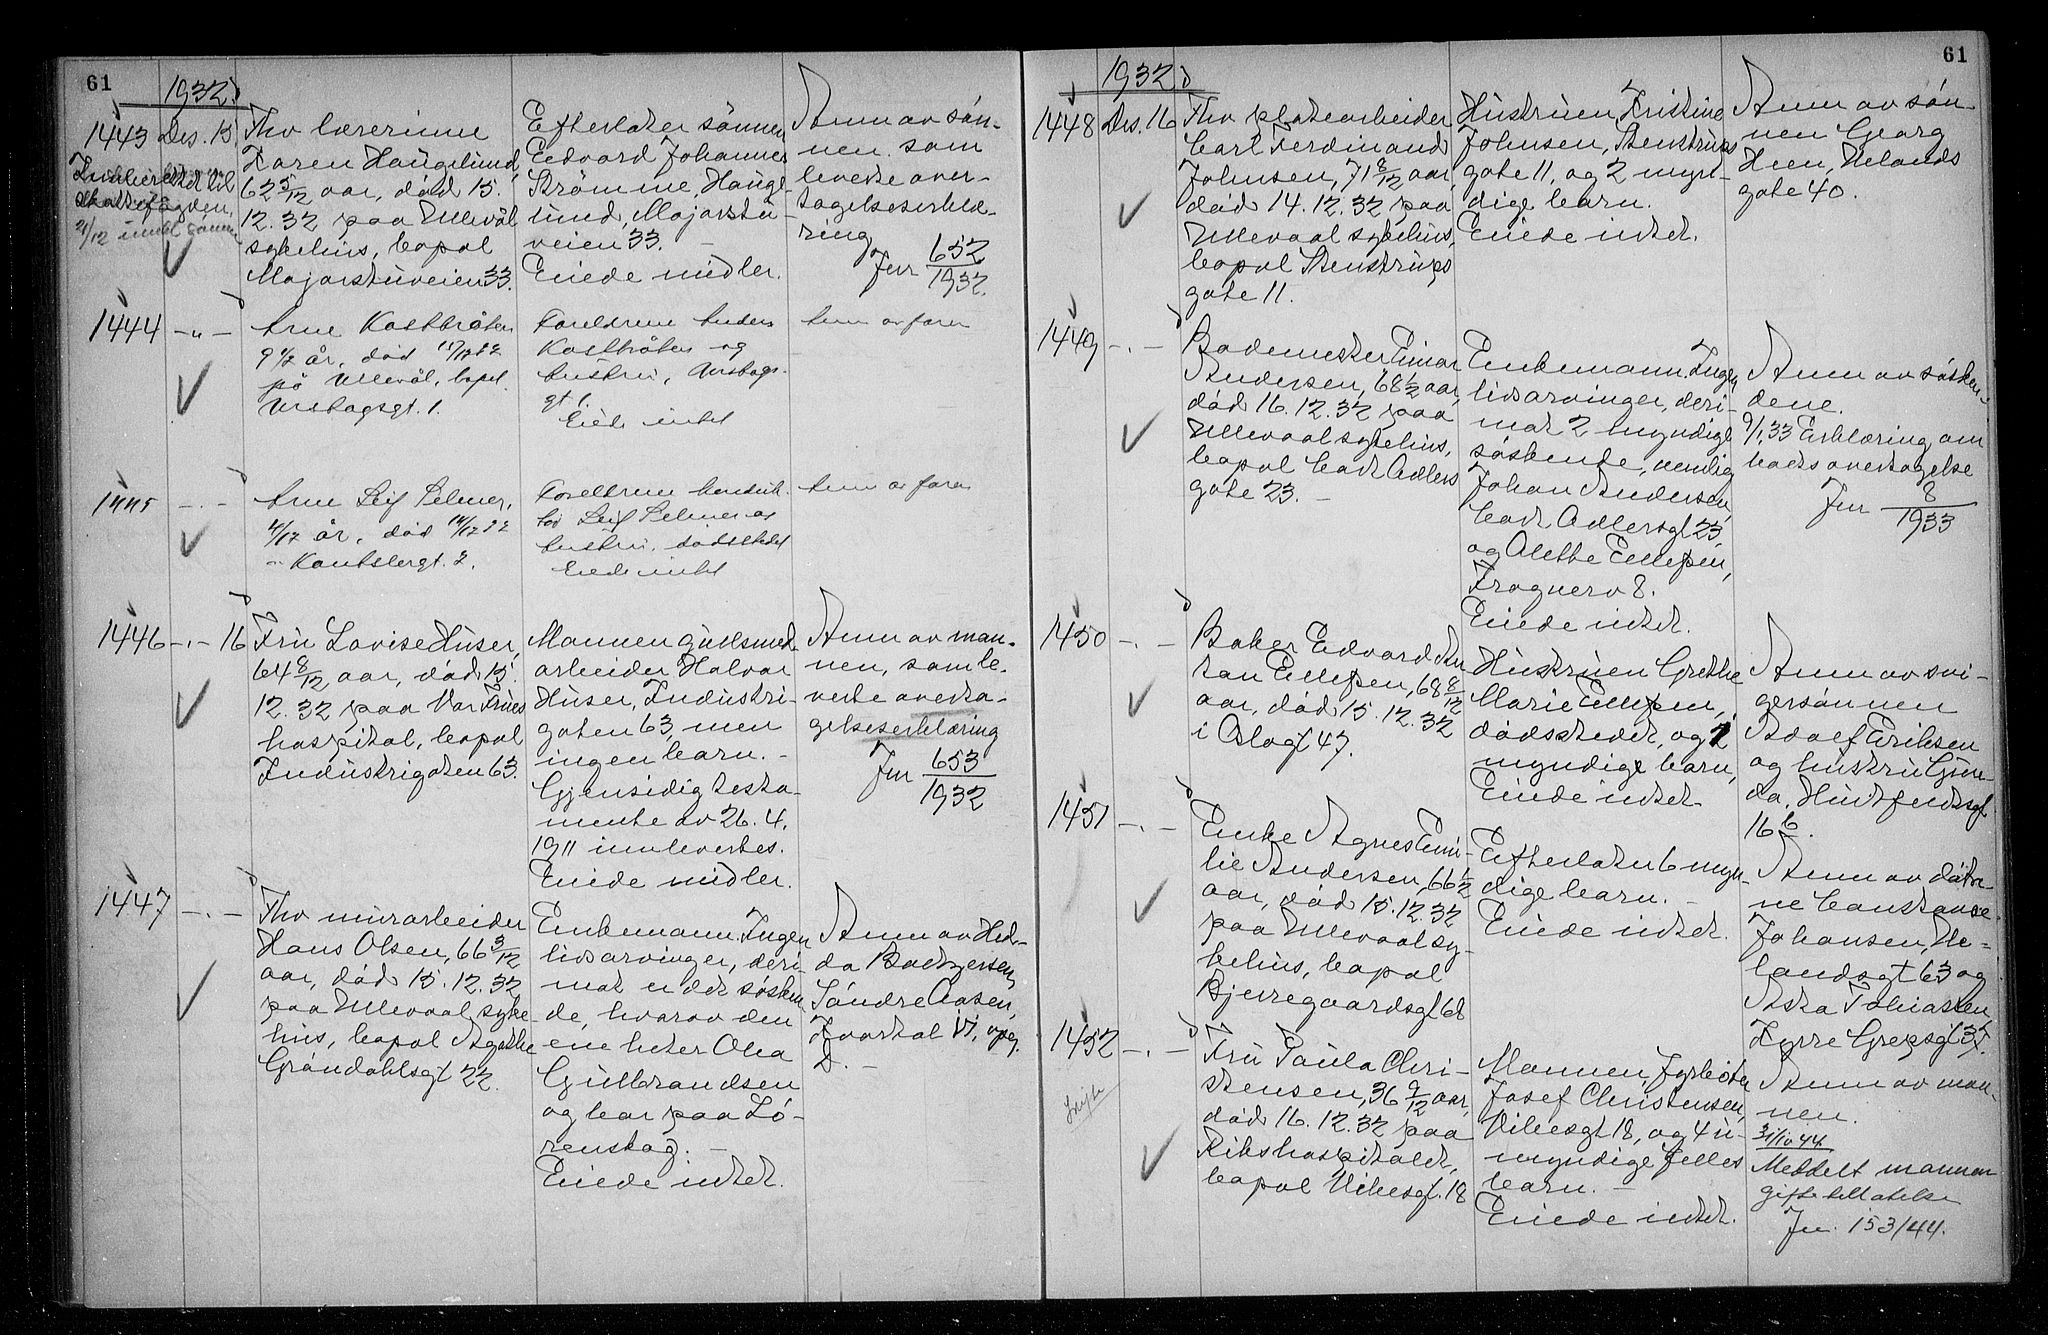 61
1932
1443 Des. 15.
Fhv lærerinne
Karen Haugelund,
62 5/12 aar, død 15.
12.32 paa Ullevål
sykehus, bopel
Majorstuveien 33.
Efterlater sønnen
Edvard Johannes
Strømme Hauge-
lund, Majorstu-
veien 33. -
Eiede midler.
Anm av søn-
nen som
leverte over-
tagelseserklæ-
ring
Jnr 652/1932.
skattefogden,
1444 -"-
Arne
9 1/2 år, død
på Ullevål, bopel
Foreldrene
og
hustru,
gt 1.
Eide intet
Anm av faren
1445 -.-
Arne Leif
11/12 år, død 14/12 32
2.
Foreldrene
Leif
hustru, dødsstedet
Eiede intet
Anm av faren
1446 -.- 16
Fru Lovise Huser,
64 8/12 aar, død 15.
12.32 paa Vor Frues
hospital, bopel
Industrigaten 63.
Mannen gullsmed-
arbeider Halvar
Huser, Industri-
gaten 63, men
ingen barn. -
Gjensidig testa-
mente av 26.4.
1911 innlevertes.
Eiede midler.
Anm av man-
nen, som le-
verte overta-
gelseserklæring
Jnr 653/1932
1447 -.-
Fhv murarbeider
Hans Olsen, 66 3/12
aar, død 15.12.32
paa Ullevaal syke-
hus, bopel Agathe
Grøndahlsgt 22.
Enkemann. Ingen
livsarvinger, deri-
mot endel søsken-
de, hvorav den
ene heter Olea
Gulbrandsen
og bor paa Lø-
renskog. -
Eiede intet.
Anm av Hed-
da Bodversen,
Søndre Aasen,
Kvartal VI, opg.
D. -
61
1932
1448 Des. 16
Fhv platearbeider
Carl Ferdinand
Johnsen, 71 8/12 aar,
død 14.12.32 paa
Ullevaal sykehus,
bopel Stenstrups
gate 11.
Hustruen Kristine
Johnsen, Stenstrups
gate 11, og 2 myn-
dige barn.
Eiede intet.
Anm av søn-
nen Georg
Hen, Uelands
gate 40.
1449 -.-
Bademester Einar
Andersen, 68 1/2 aar,
død 16.12.32 paa
Ullevaal sykehus,
bopel Cort Adlers
gate 23. -
Enkemann. Ingen
livsarvinger, deri-
mot 2 myndige
søskende, nemlig
Johan Andersen,
Cort Adlersgt 23,
og Alethe Ellefsen,
Frognerv 8.
Eiede intet.
Anm av søsken-
dene.
9/1.33 Erklæring om
boets overtagelse
Jnr 8/1933
1450 -.-
Baker Edvard An-
ton Ellefsen, 68 8/12
aar, død 15.12.32
i Oslogt 47.
Hustruen Grethe
Marie Ellefsen,
dødsstedet, og 7
myndige barn,
Eiede intet.
Anm av svi-
gersønnen
Adolf Eriksen
og hustru Gun-
da, Huitfeldtsgt
16 b.
1451 -.-
Enke Agnes Emi-
lie Andersen, 66 1/2
aar, død 15.12.32
paa Ullevaal sy-
kehus, bopel
Bjerregaardsgt 68
Efterlater 6 myn-
dige barn. -
Eiede intet.
Anm av døtre-
ne Constanse
Johansen, Ue-
landsgt 63 og
Asta Tobiassen,
Kyrre Grepsgt 35.
1452 -.-
Fru Paula Chri-
stensen, 36 9/12 aar,
død 16.12.32 paa
Rikshospitalet,
bopel Vibesgt. 18
Mannen, fyrbøter
Josef Christensen,
Vibesgt 18, og 4 u-
myndige felles
barn. -
Eiede intet.
Anm av man-
nen.
Meddelt mannen
giftetillatelse
Jnr. 153/44.